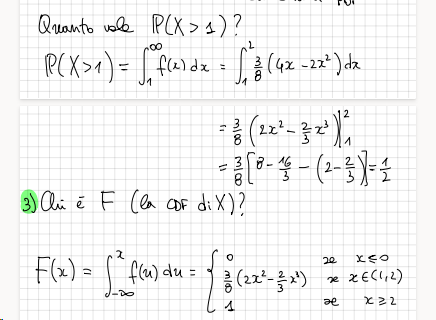 Quanto vale P(X > 1)?
P(X>1) = ∫₁^∞ f(x) dx = ∫₁² 3/8 (4x - 2x²) dx
= 3/8 (2x² - 2/3 x³) |₁²
= 3/8 [8 - 16/3 - (2 - 2/3)] = 1/2
3) Chi è F (la CDF di X)?
F(x) = ∫_{-∞}^x f(u) du = { 0 se x ≤ 0
3/8 (2x² - 2/3 x³) se x ∈ (1, 2)
1 se x ≥ 2